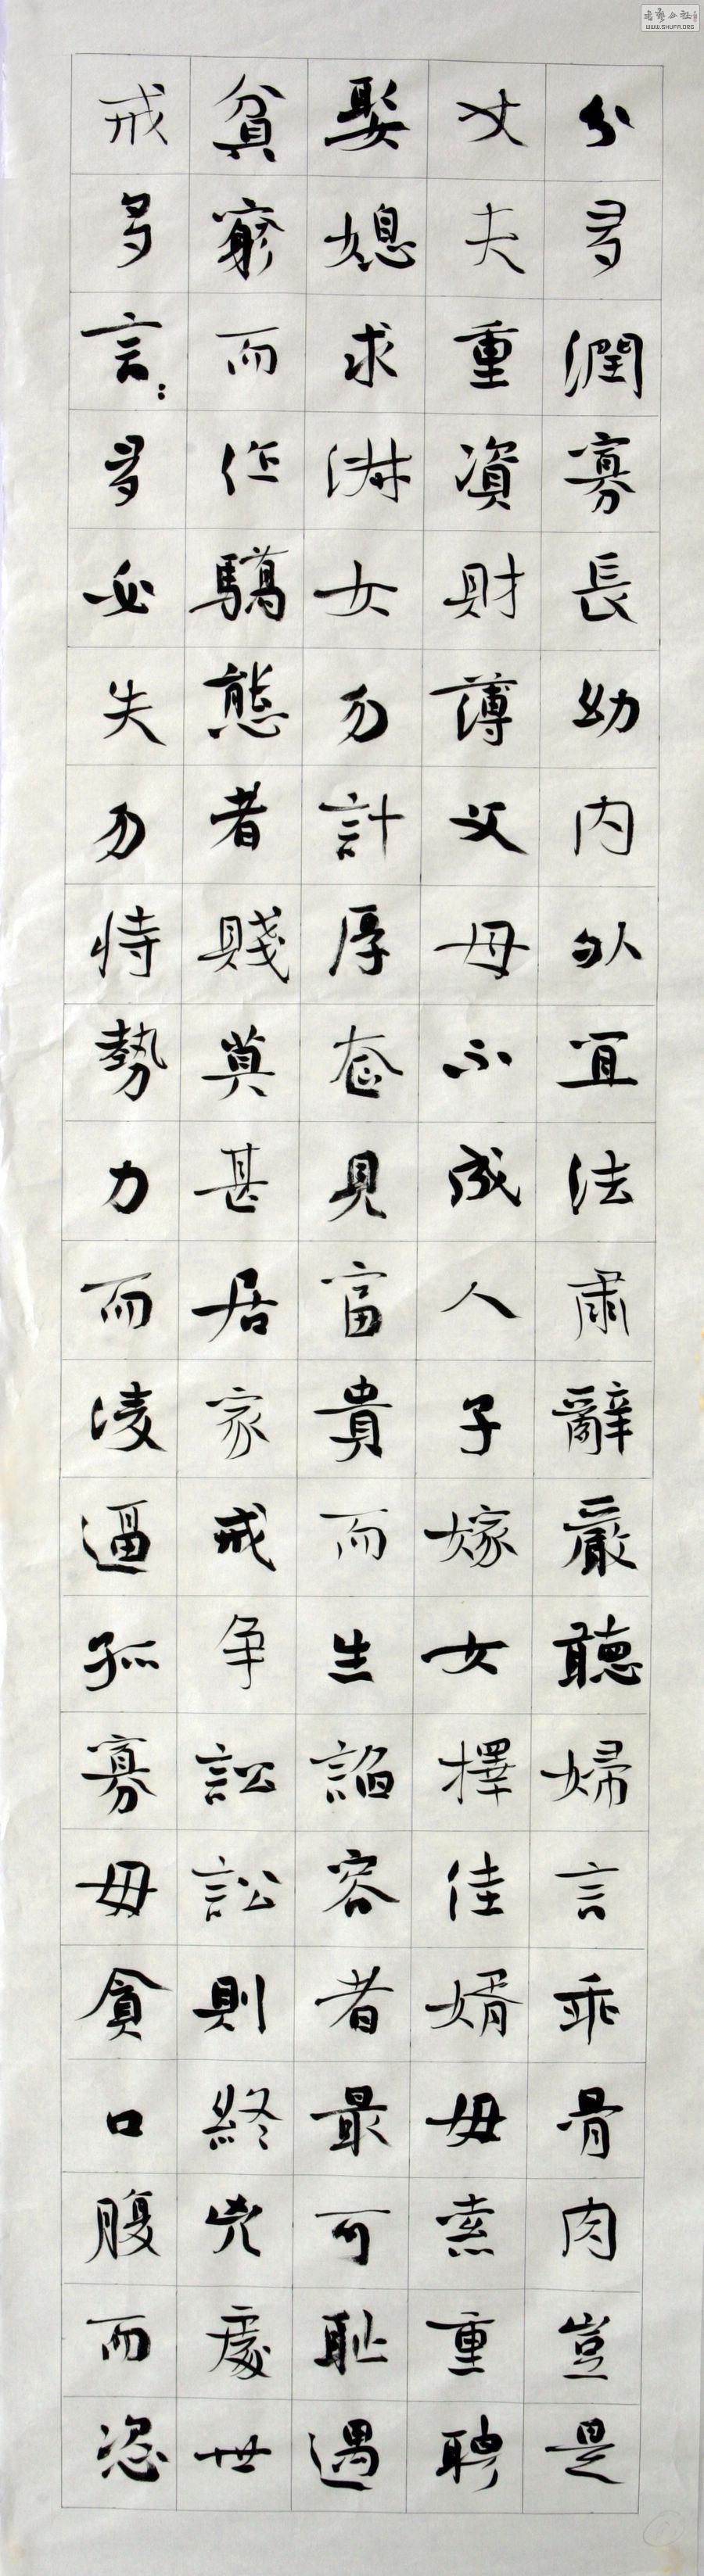 分多潤寡長幼内外宜法肅辭嚴聽婦言乖骨肉豈是
丈夫重資財薄父母不成人子嫁女擇佳婿毋索重聘
娶媳求淑女勿計厚奩見富貴而生諂容者最可耻遇
貧窮而作驕態者賤莫甚居家戒争訟訟則終兇處世
戒多言：多必失勿恃勢力而凌逼孤寡毋貪口腹而恣
书艺公社
WWW.SHUFA.ORG